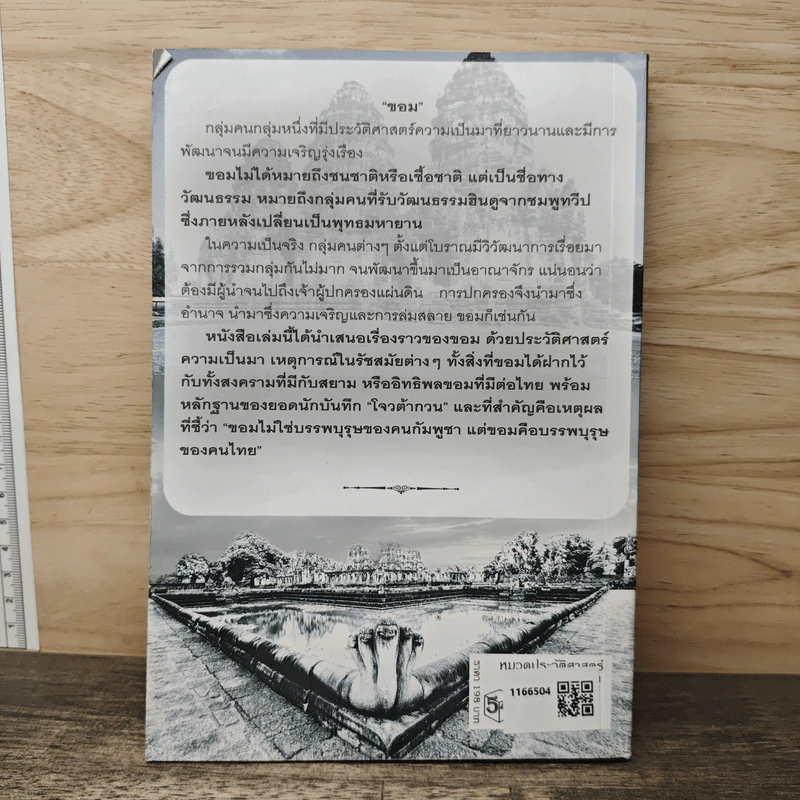 "ขอม"
กลุ่มคนกลุ่มหนึ่งที่มีประวัติศาสตร์ความเป็นมาที่ยาวนานและมีการ
พัฒนาจนมีความเจริญรุ่งเรือง
ขอมไม่ได้หมายถึงชนชาติหรือเชื้อชาติ แต่เป็นชื่อทาง
วัฒนธรรม หมายถึงกลุ่มคนที่รับวัฒนธรรมฮินดูจากชมพูทวีป
ซึ่งภายหลังเปลี่ยนเป็นพุทธมหายาน
ในความเป็นจริง กลุ่มคนต่างๆ ตั้งแต่โบราณมีวิวัฒนาการเรื่อยมา
จากการรวมกลุ่มกันไม่มาก จนพัฒนาขึ้นมาเป็นอาณาจักร แน่นอนว่า
ต้องมีผู้นำจนไปถึงเจ้าผู้ปกครองแผ่นดิน การปกครองจึงนำมาซึ่ง
อำนาจ นำมาซึ่งความเจริญและการล่มสลาย ขอมก็เช่นกัน
หนังสือเล่มนี้ได้นำเสนอเรื่องราวของขอม ด้วยประวัติศาสตร์
ความเป็นมา เหตุการณ์ในรัชสมัยต่างๆ ทั้งสิ่งที่ขอมได้ฝากไว้
กับทั้งสงครามที่มีกับสยาม หรืออิทธิพลขอมที่มีต่อไทย พร้อม
หลักฐานของยอดนักบันทึก "โจวต้ากวน" และที่สำคัญคือเหตุผล
ที่ชี้ว่า "ขอมไม่ใช่บรรพบุรุษของคนกัมพูชา แต่ขอมคือบรรพบุรุษ
ของคนไทย"
หมวดประวัติศาสตร์
ราคา 198 บาท
1166504